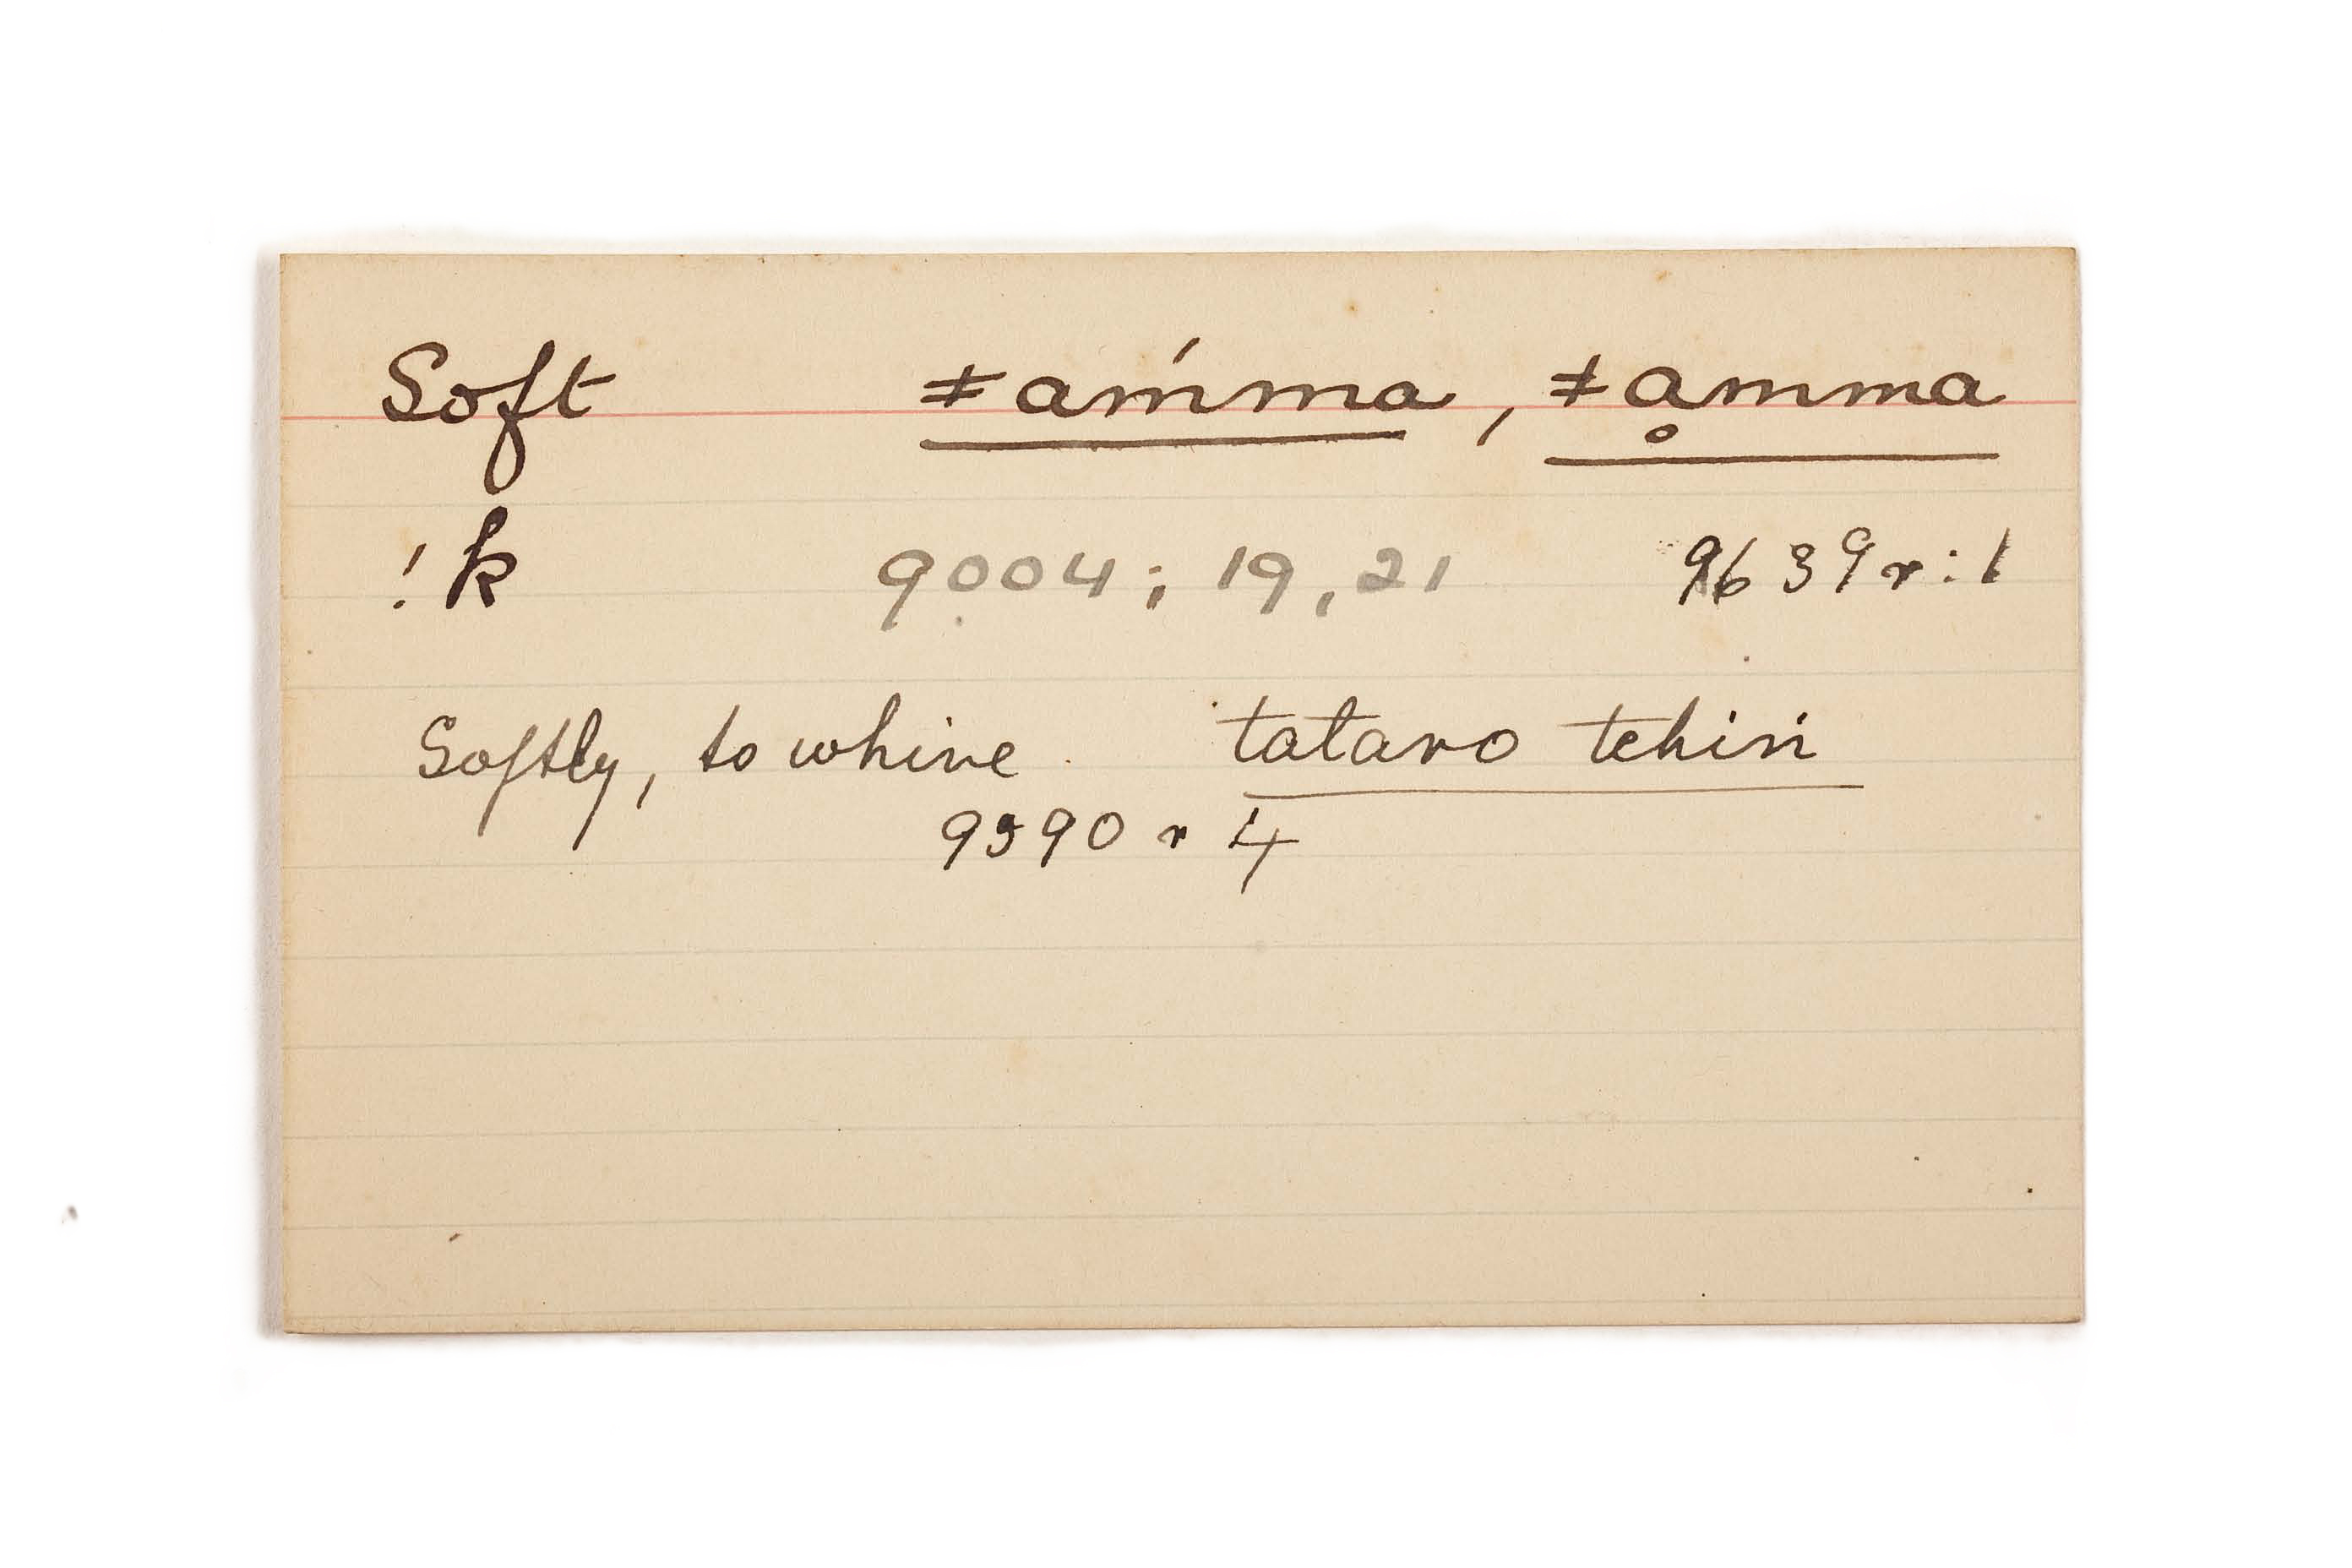 Soft ǂaḿma, ǂḁmma
!k 9004; 19, 21 9639 r: 1
Softly, to whine. tataro tchiṅ
9590 r 4